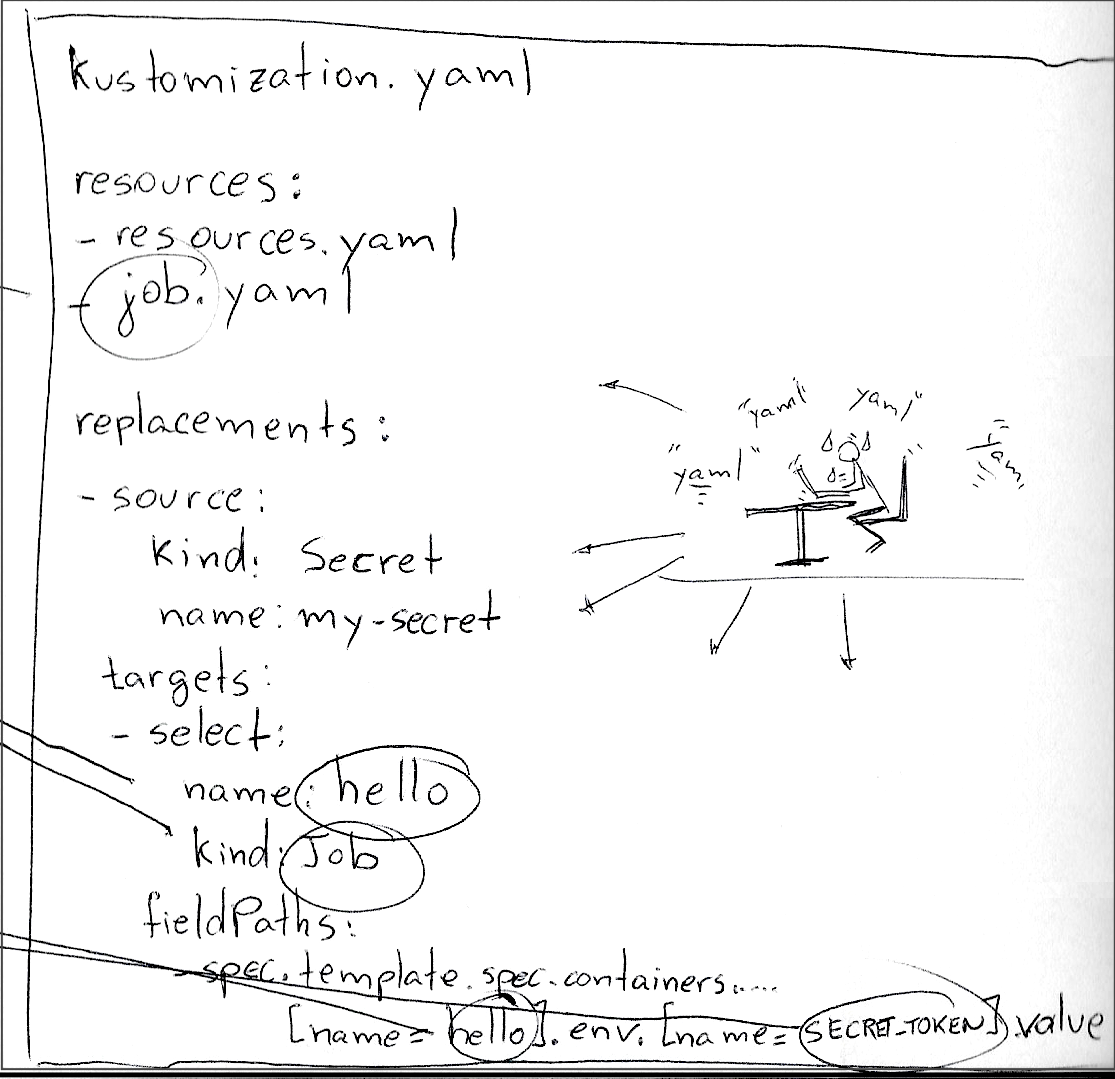 kustomization.yaml
resources:
- resources.yaml
- job.yaml
replacements:
- source:
kind: Secret
name: my-secret
targets:
- select:
name: hello
kind: Job
fieldPaths:
- spec.template.spec.containers.....
[name=hello].env.[name=SECRET_TOKEN].value
"yaml"
"yaml"
yaml"
yam